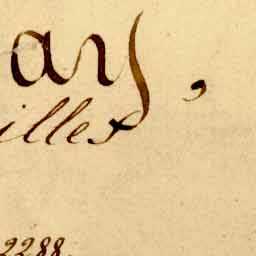 ary,
illes
2288.